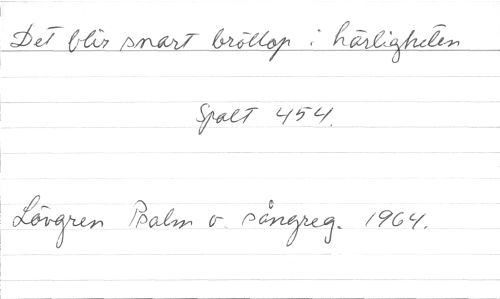 Det blir snart bröllop i härligheten
Spalt 454.
Lövgren Psalm o. sångreg. 1964.